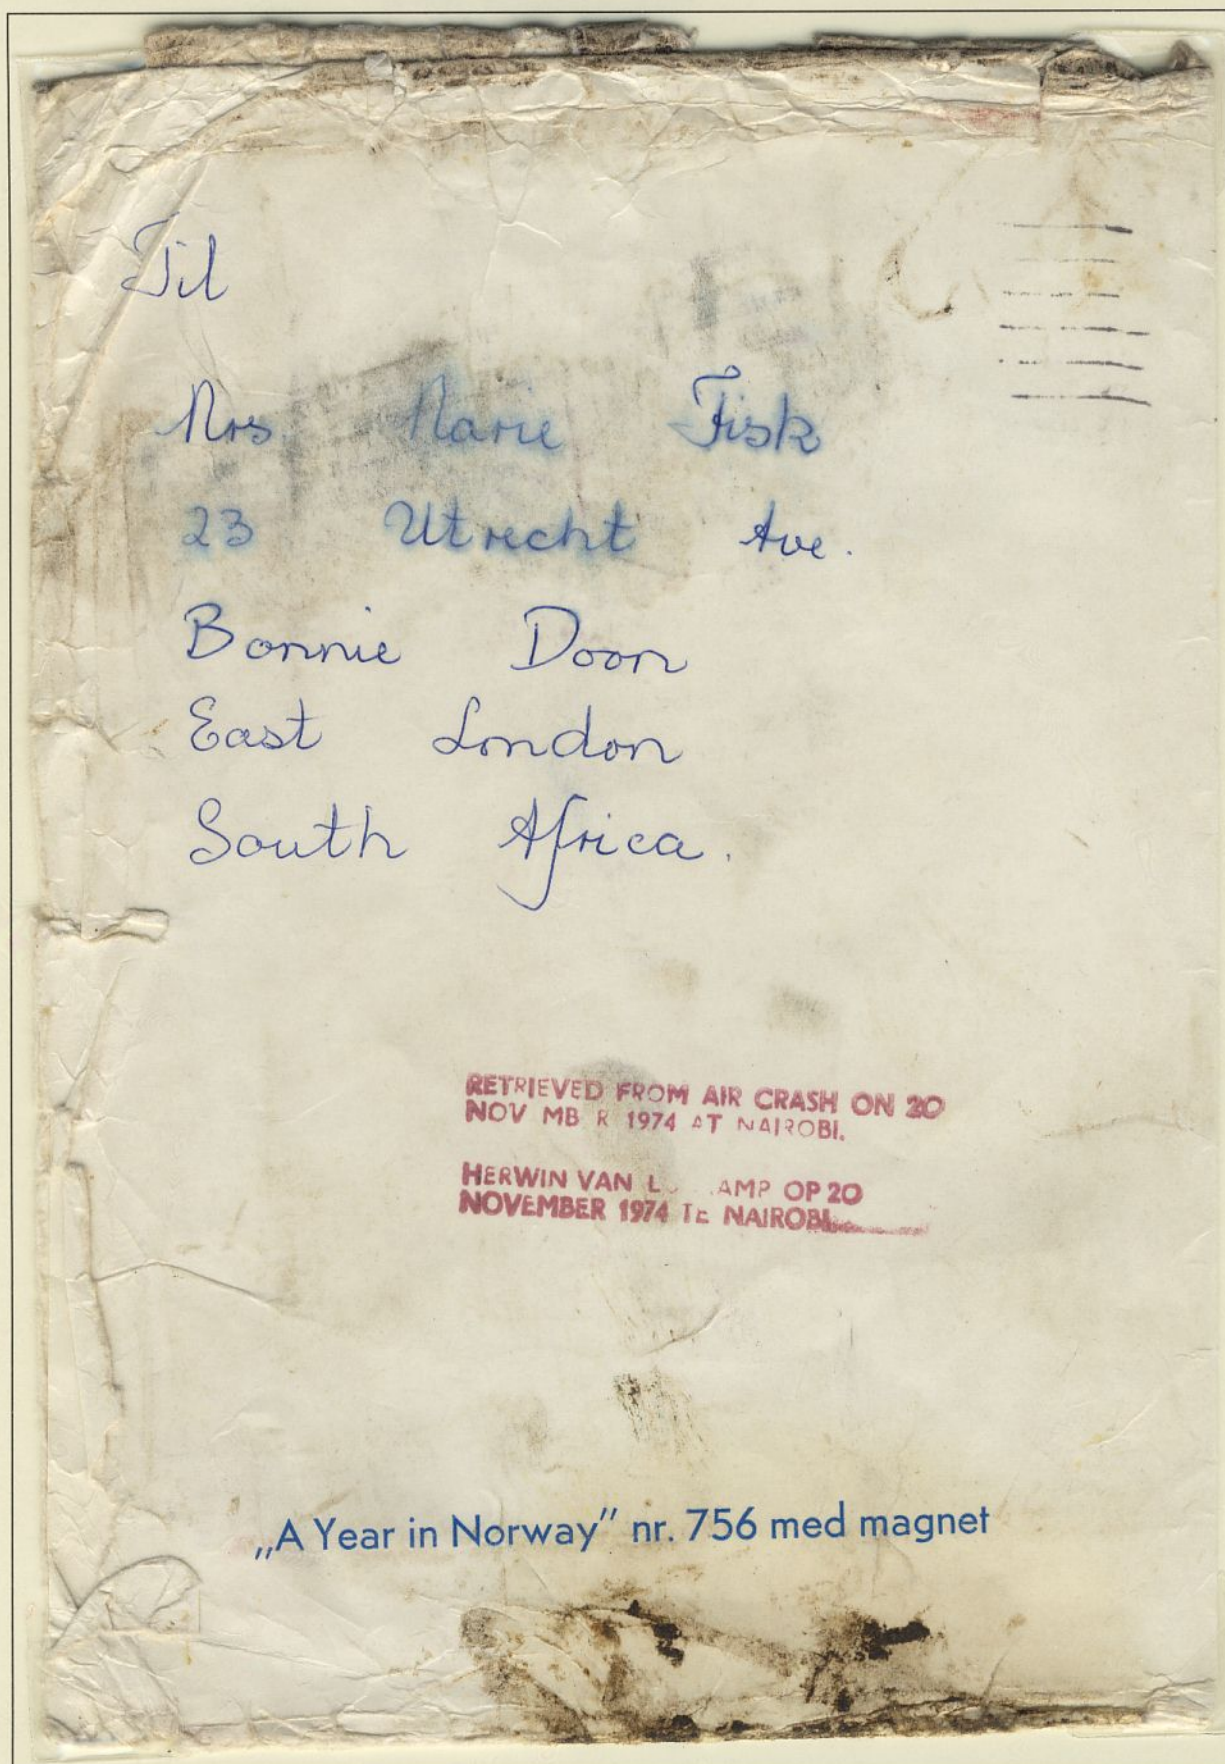 Til
Mrs Marie Fisk
23 Utrecht Ave.
Bonnie Doon
East London
South Africa.
RETRIEVED FROM AIR CRASH ON 20
NOV MB R 1974 AT NAIROBI.
HERWIN VAN L AMP OP 20
NOVEMBER 1974 TE NAIROBI
„A Year in Norway” nr. 756 med magnet